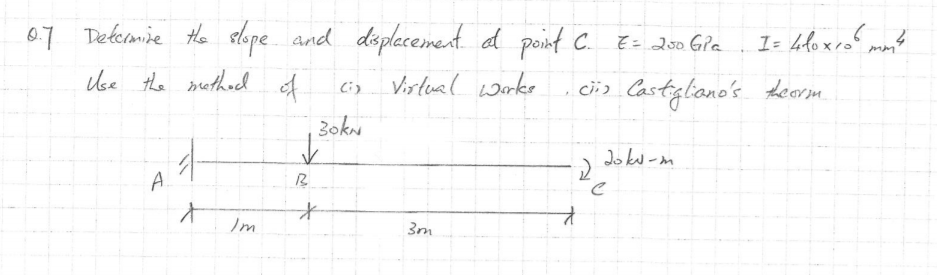 Q.7 Determine the slope and displacement at point C. E = 200 GPa . I = 410x10⁶ mm⁴
Use the method of (i) Virtual Works . (ii) Castigliano's theorm
30kN
20kN-m
A
B
C
1m
3m